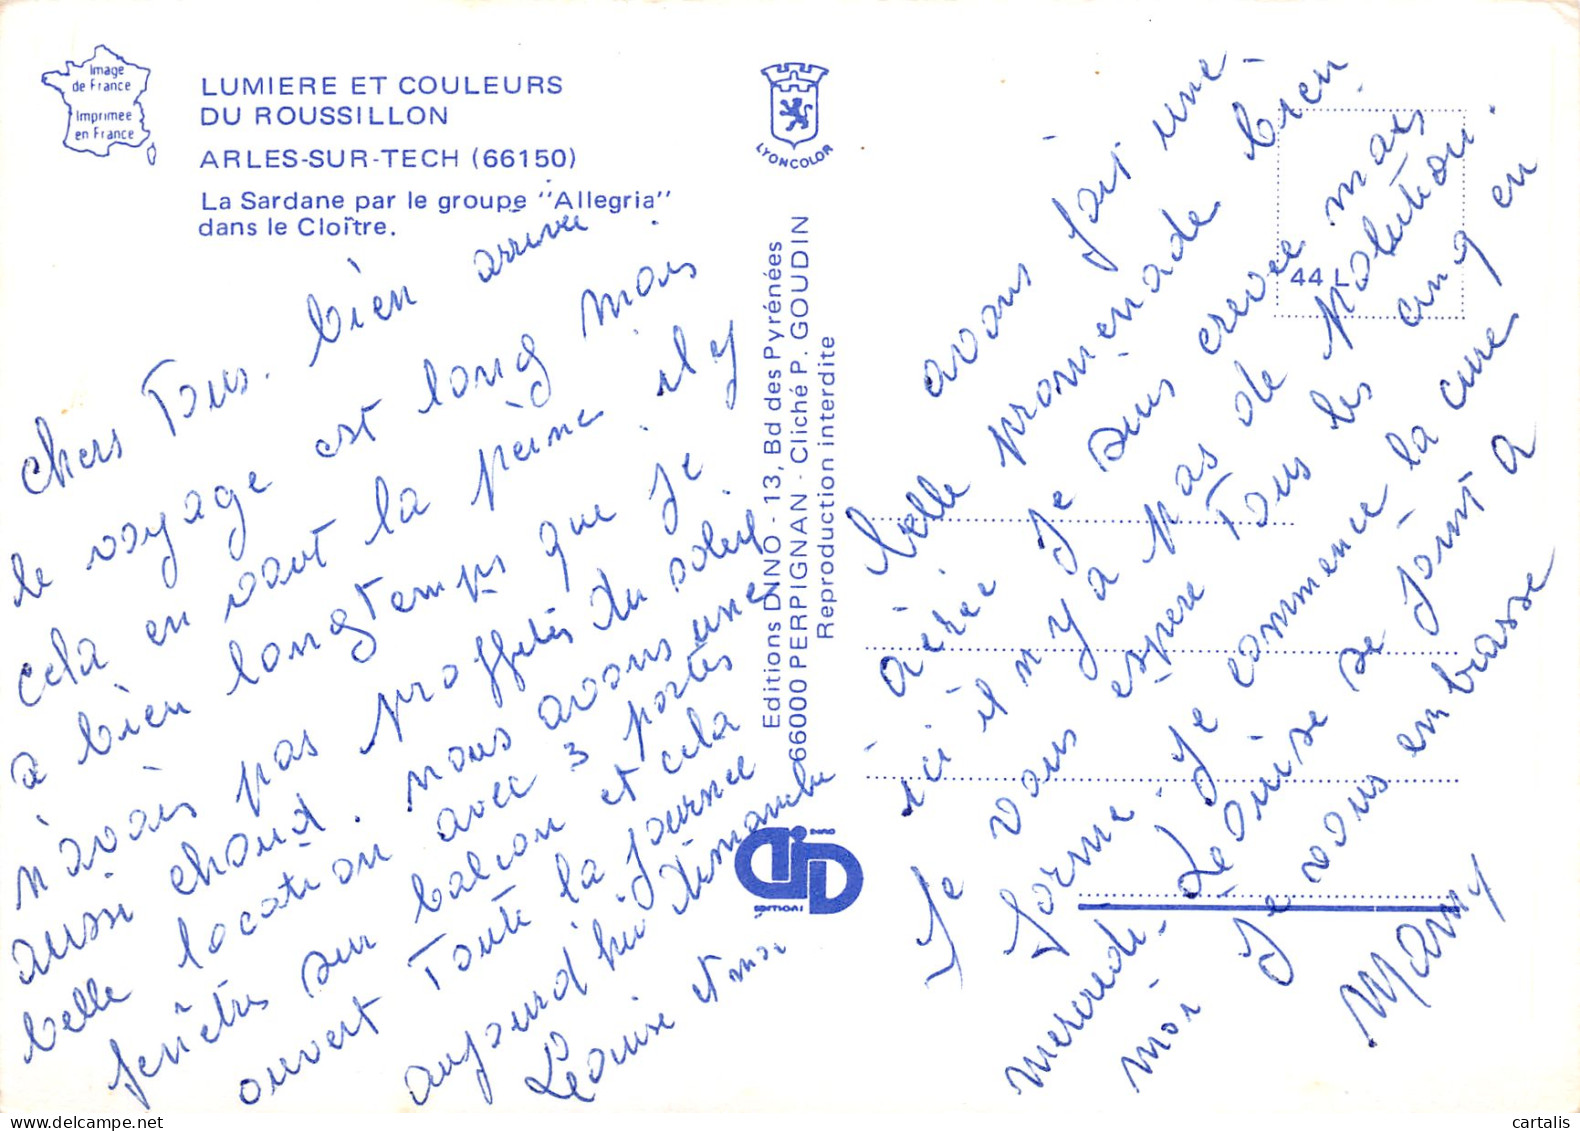 Image
de France
Imprimee
en France
LUMIERE ET COULEURS
DU ROUSSILLON
ARLES-SUR-TECH (66150)
La Sardane par le groupe "Allegria"
dans le Cloître.
LYONCOLOR
44
Editions DINO - 13, Bd des Pyrénées
66000 PERPIGNAN - Cliché P. GOUDIN
Reproduction interdite
DINO
EDITIONS
chers Tous. bien arrivée
le voyage est long mais
cela en vaut la peine il y
a bien longtemps que je
n'avais pas proffités du soleil
aussi chaud. nous avons une
belle location avec 3 portes
fenêtres sur balcon et cela
ouvert Toute la journee
aujourd'hui dimanche
Léouise et moi
avons fait une
belle promenade bien
aérée je suis crevée mais
ici il n'y a pas de polution.
Je vous espere Tous les cinq en
forme. Je commence la cure
mercredi. Léouise se joint a
moi Je vous embrasse
Mamy
cartalis